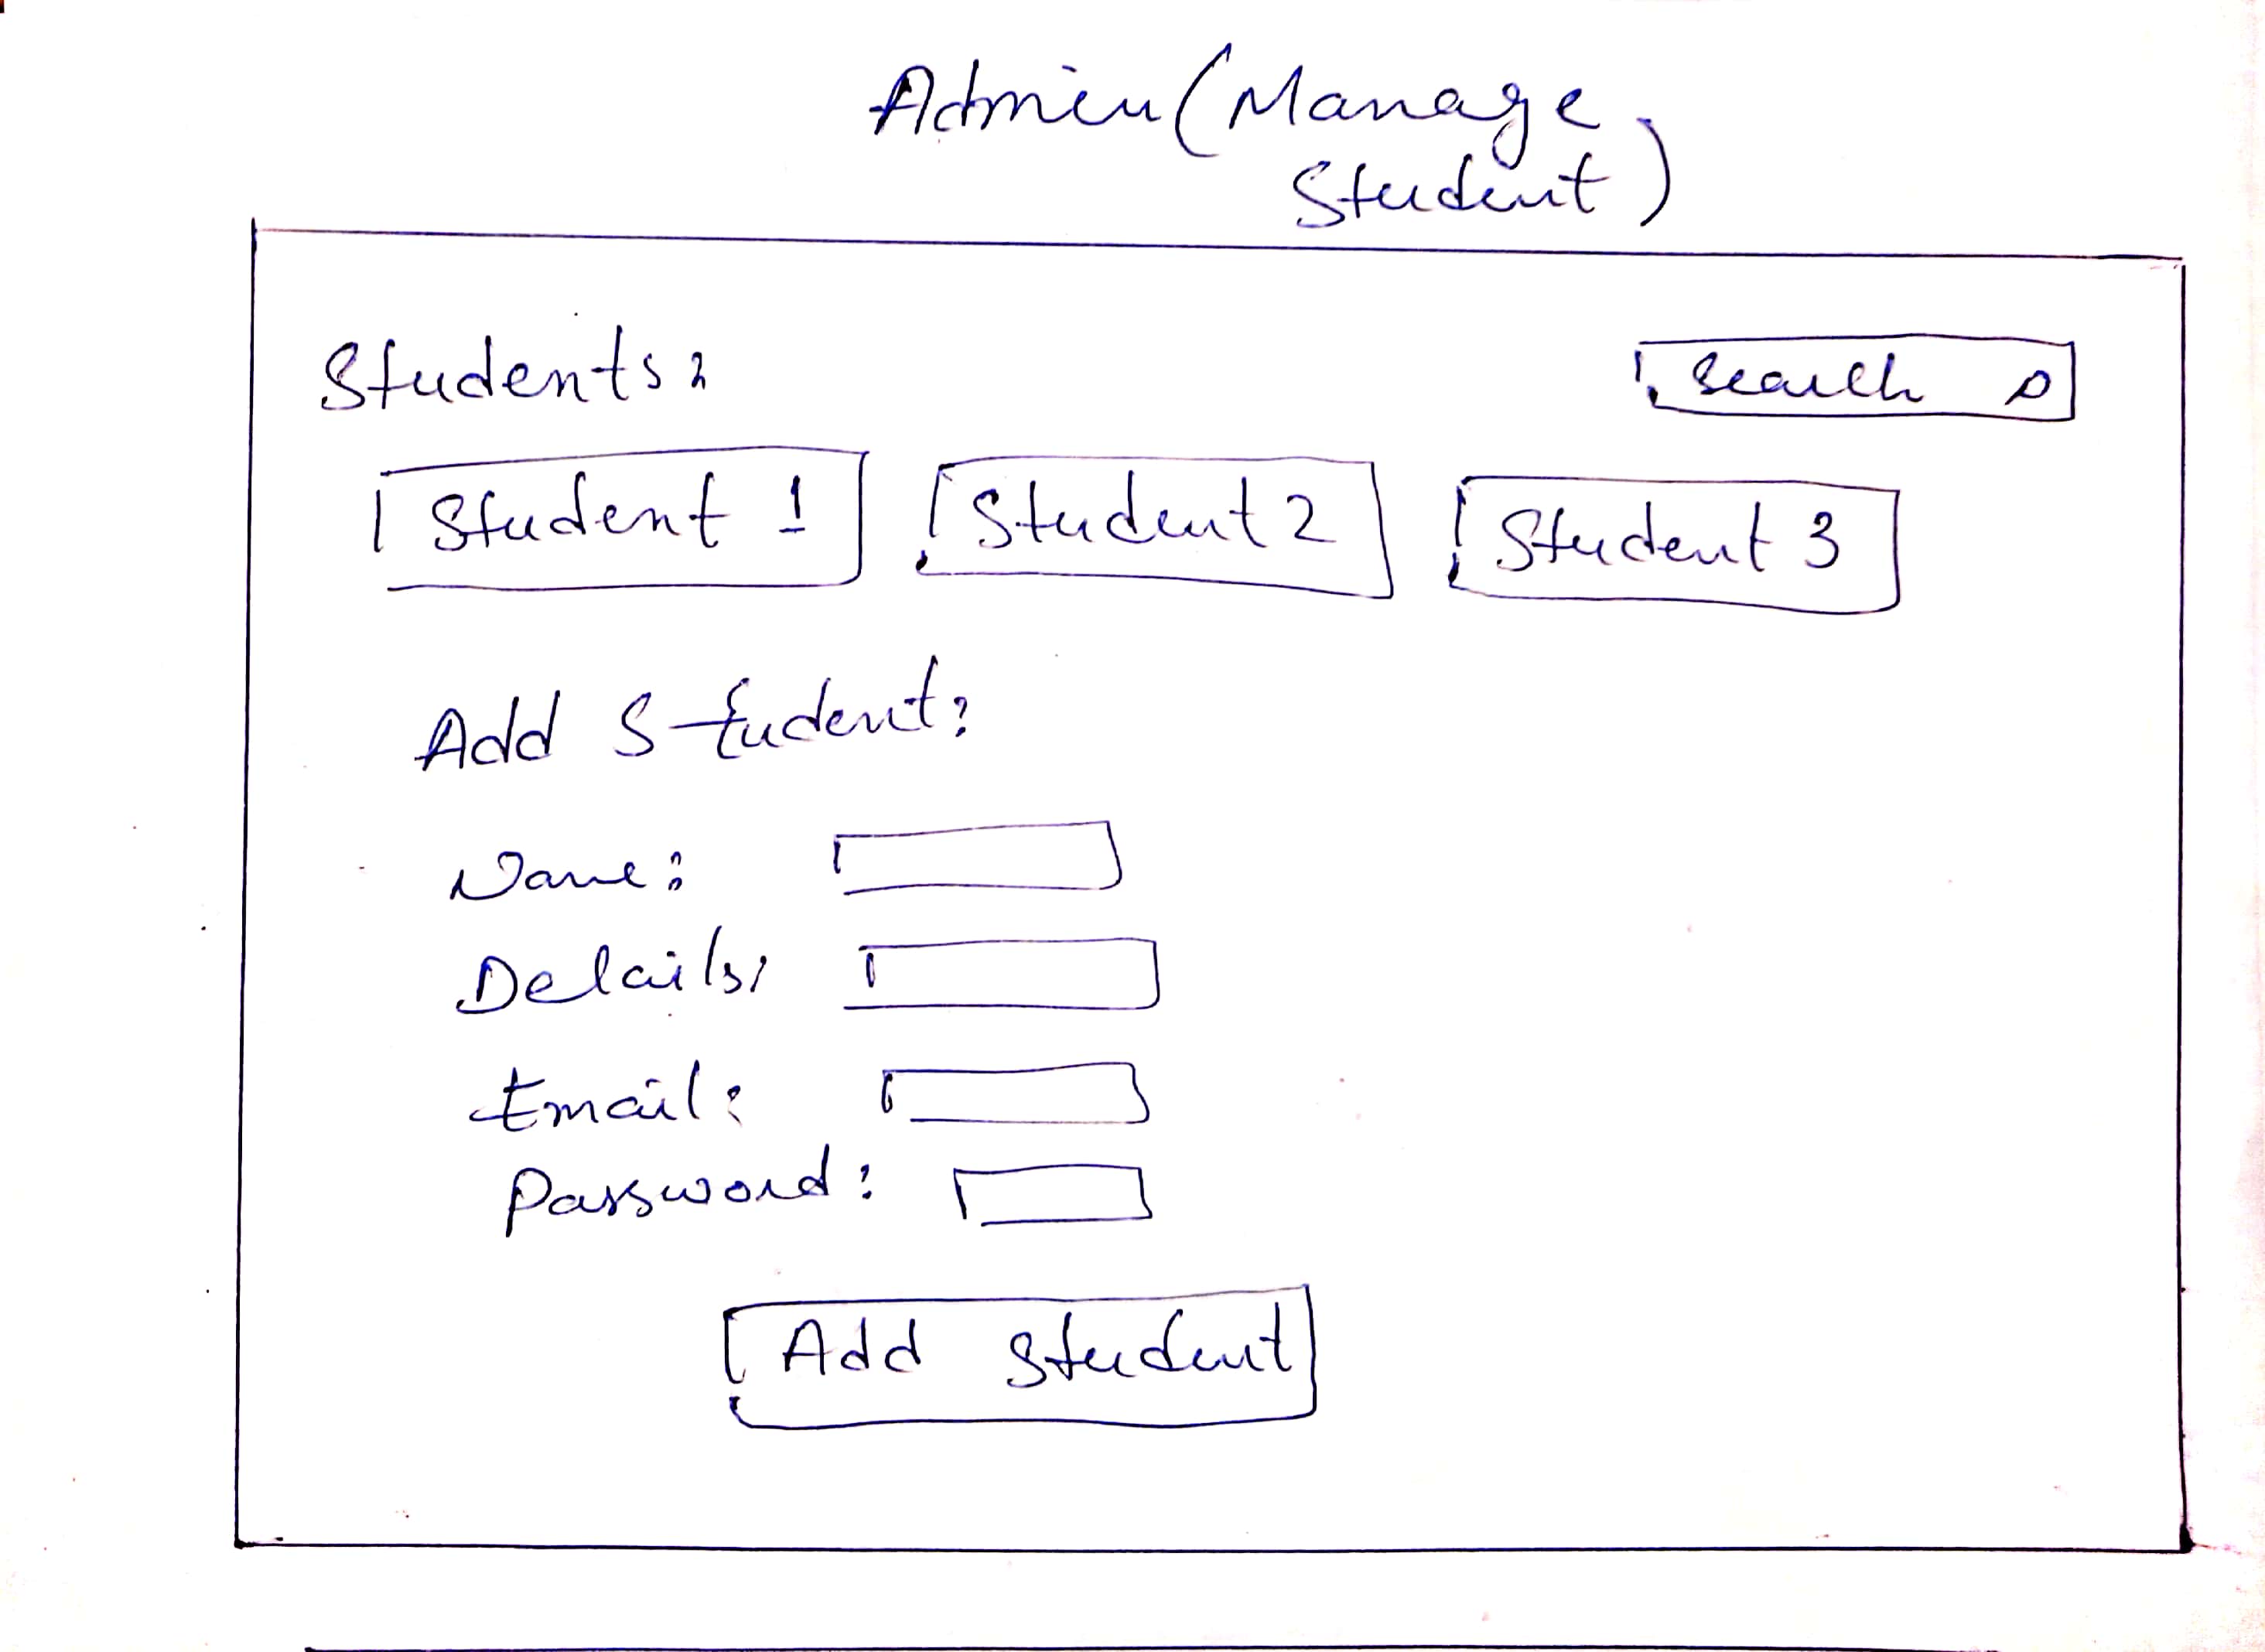 Admin (Manage
Student)
Students:
Search
Student 1
Student 2
Student 3
Add Student:
Name:
Details:
Email:
Password:
Add Student